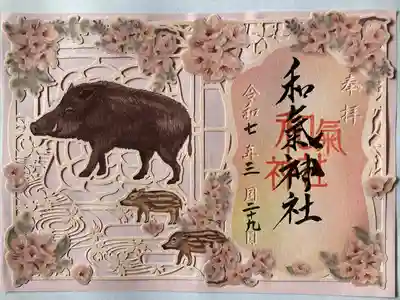 奉拝
和氣神社
和氣神社
令和七年三月二十九日